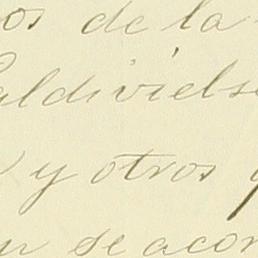 os de la
Valdivielso
y otros
se acor